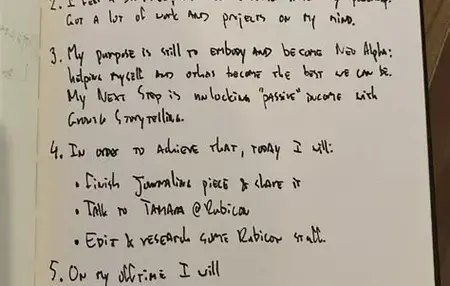 2. I
Got a lot of work and projects on my mind.
3. My purpose is still to embody and become Neo Alpha:
helping myself and others become the best we can be.
My Next Step is unlocking "passive" income with
Growth Storytelling.
4. In order to achieve that, today I will:
• Finish Journaling piece & share it
• Talk to Tamara @Rubicon
• Edit & research some Rubicon stuff.
5. On my offtime I will